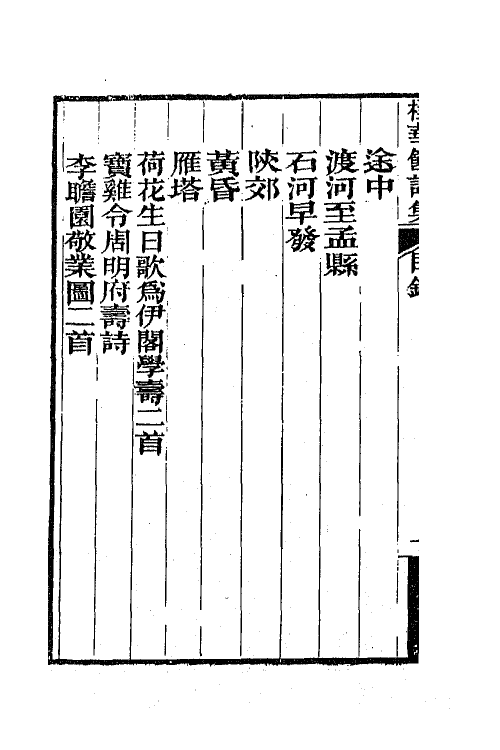 途中
渡河至孟縣
石河早發
陝郊
黃昏
雁塔
荷花生日歌爲伊閣學壽二首
寶雞令周明府壽詩
李瞻園敬業圖二首